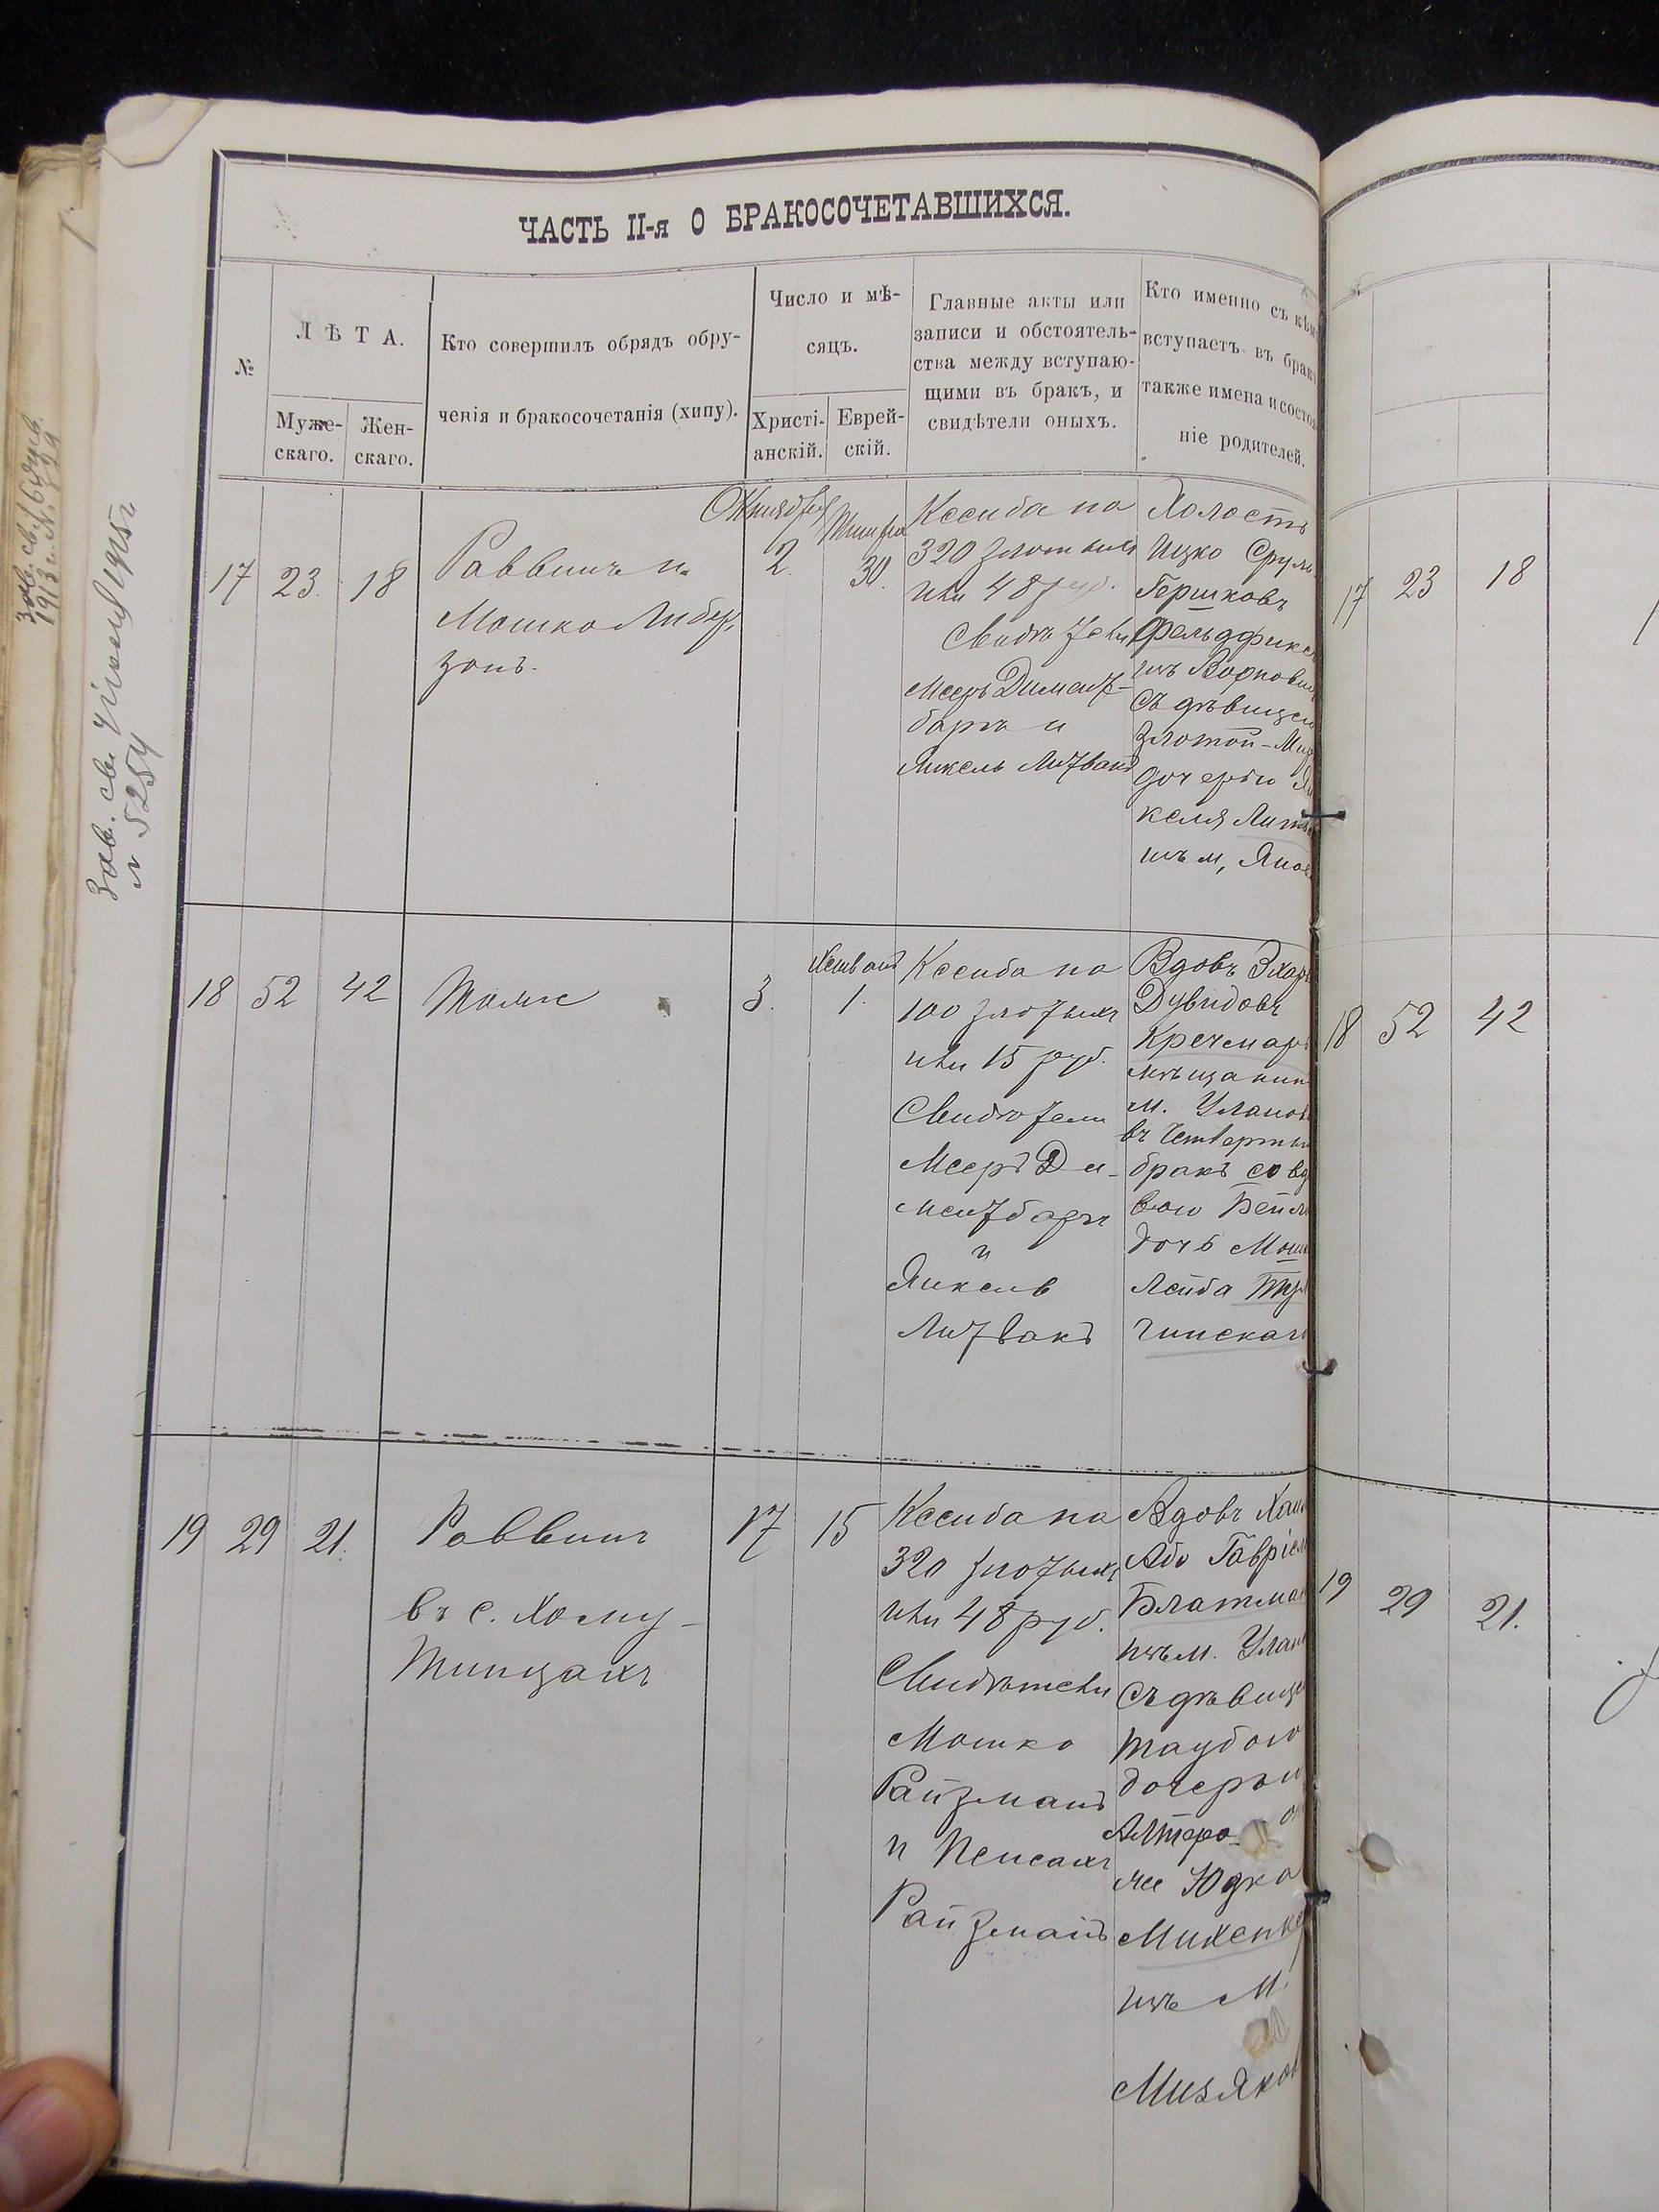 ЧАСТЬ II-я О БРАКОСОЧЕТАВШИХСЯ.
№
ЛѢТА.
Муже-
скаго.
Жен-
скаго.
Кто совершилъ обрядъ обру-
ченія и бракосочетанія (хипу).
Число и мѣ-
сяцъ.
Христі-
анскій.
Еврей-
скій.
Главные акты или
записи и обстоятель-
ства между вступаю-
щими въ бракъ, и
свидѣтели оныхъ.
Кто именно съ кѣмъ
вступаетъ въ бракъ
также имена и состоя
ніе родителей.
17 23. 18
Раввинъ
Мошко Либер
зонъ.
Октября
2.
Тишри
30.
Ксеиба на
320 злотыхъ
или 48 руб.
Свидѣтели
Мееръ Димент-
барг и
Янкель Литвакъ
Холостъ
Ицко Сруль
Гершковъ
Фельдфикс
изъ
съ дѣвицею
Златой-Мир
дочерью Ян
келя Литва
изъ м, Янов
18 52 42
Тотже
3.
Хешванъ
1.
Ксеиба на
100 злотыхъ
или 15 руб.
Свидѣтели
Мееръ Ди-
ментбаргъ
и
Янкель
Литвакъ
Вдовъ
Дувидовъ
Кречмаръ
мѣщанин
м. Уланов
въ Четверты
бракъ со вд
вою Бейл
дочь Мош
Лейба
чинскаг
19 29 21.
Раввинъ
въ с. Хому-
тинцахъ
17
15
Ксеиба на
320 злотыхъ
или 48 руб.
Свидѣтели
Мошко
Райзманъ
и Пейсахъ
Райзманъ
Вдовъ Хаи
Або Гавріел
Блатман
изъ м. Улан
съ дѣвице
Таубою
дочерью
Алтера-
Юдко
изъ м.
Мизяков
17 23 18
18 52 42
19 29 21.
Зав. св.
№ 5254